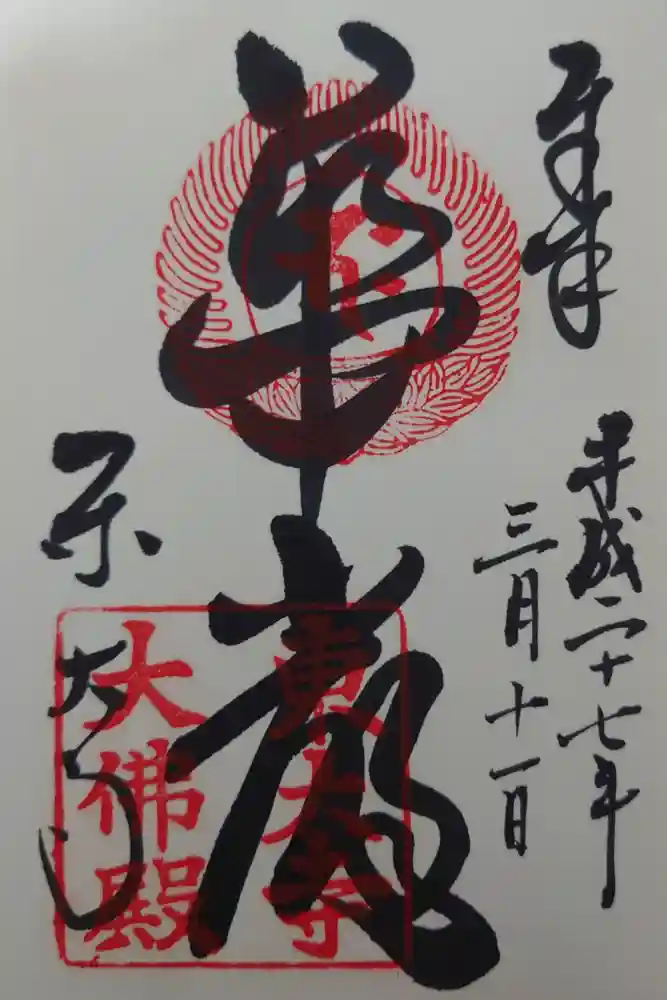 奉拝
平成二十七年
三月十一日
華嚴
東大寺
東大寺
大佛殿